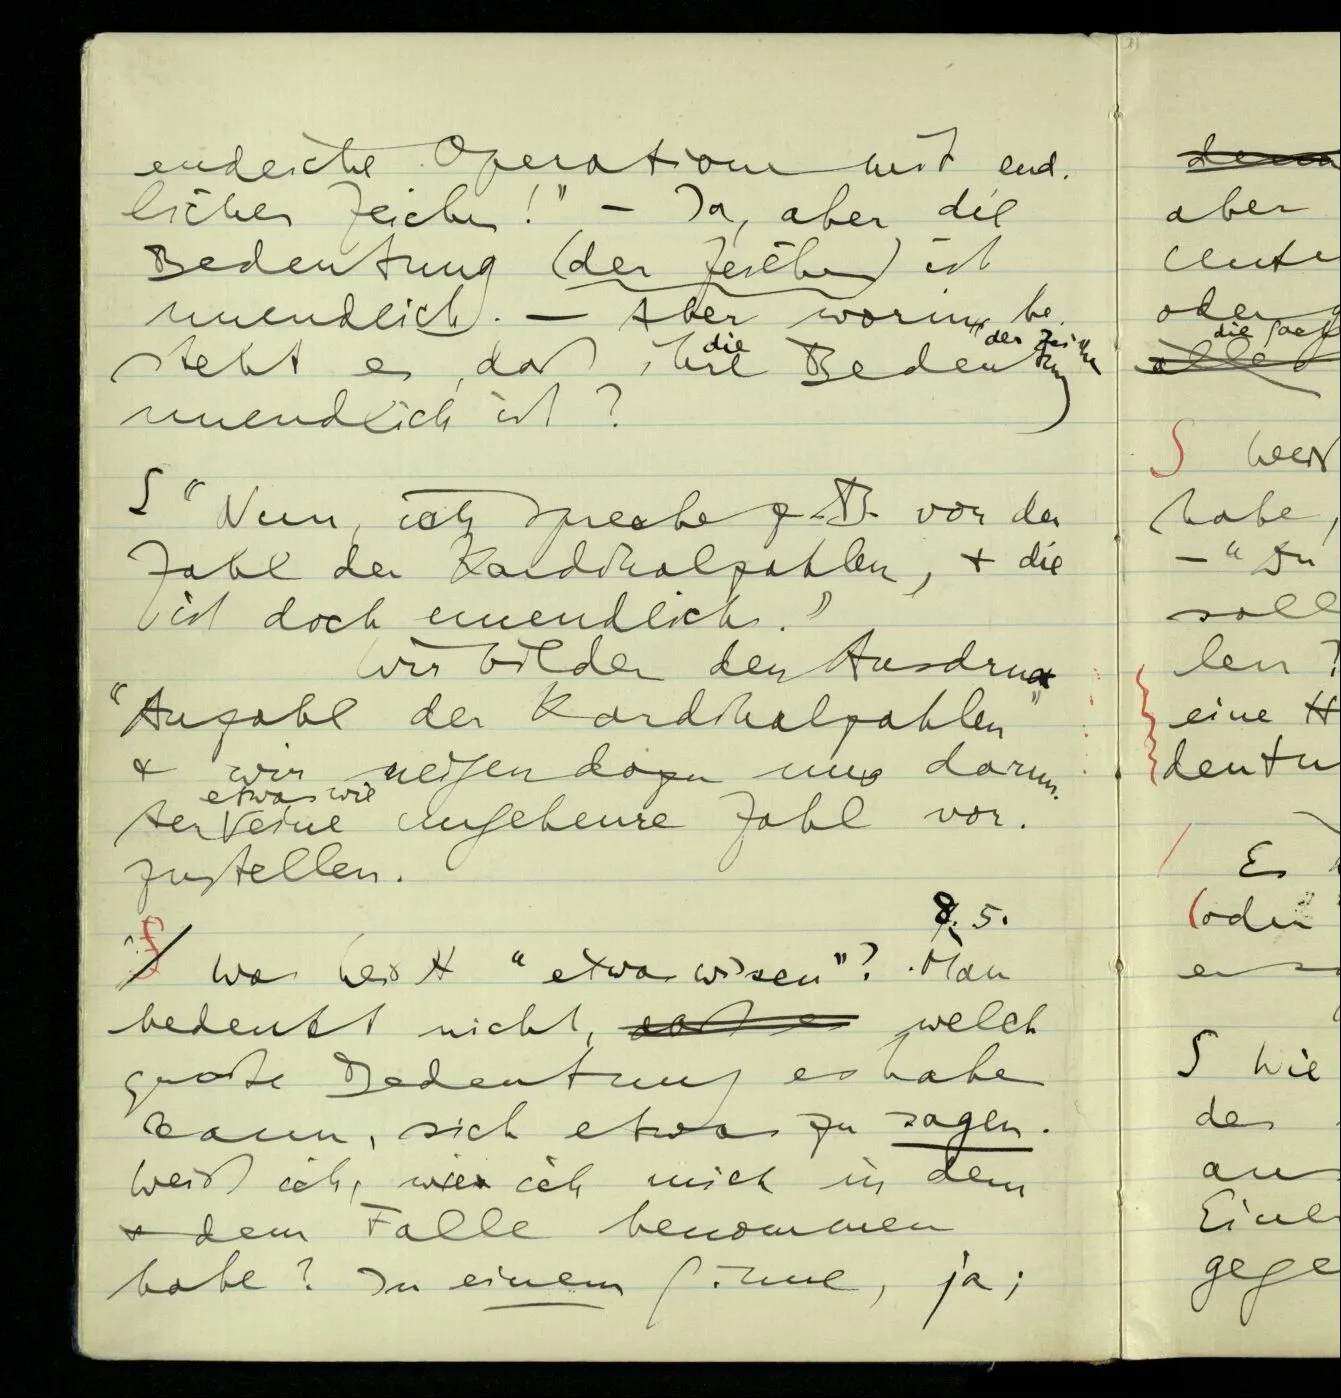 endliche Operation mit end-
lichen Zeichen!" – Ja, aber die
Bedeutung (der Zeichen) ist
unendlich. – Aber worin be-
der Zeichen
die
steht es, daß ihre Bedeutung
unendlich ist?
S "Nun, ich spreche z.B. von der
Zahl der Kardinalzahlen, + die
ist doch unendlich."
Wir bilden den Ausdruck
"Anzahl der Kardinalzahlen"
+ wir neigen dazu uns darun-
etwas wie
ter eine ungeheure Zahl vor-
zustellen.
8.5.
Was heißt "etwas wissen"? Man
bedenkt nicht, daß es welch
große Bedeutung es haben
kann, sich etwas zu sagen.
Weiß ich, wie ich mich in dem
+ dem Falle benommen
habe? In einem Sinne, ja;
aber
oder
S
habe,
– "
soll
len?
eine
Es
(oder
S Wie
des
gege